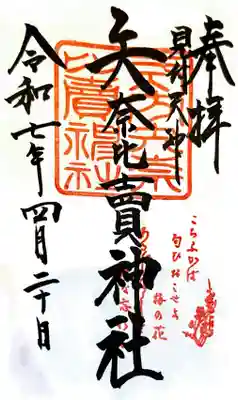 奉拝
見付天神
矢奈比賣神社
令和七年四月二十日
こちふかば
匂ひおこせよ
梅の花